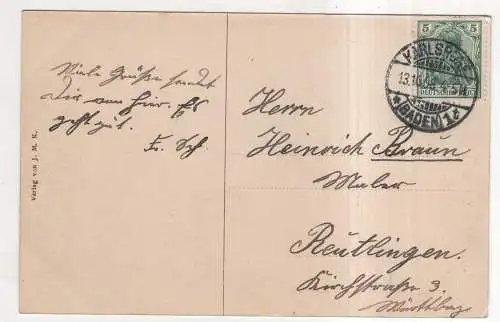 Viele Grüße sendet
Dir von hier. Es
geht gut.
E. Sch.
Verlag von J. M. K.
5
DEUTSCHES REICH
KARLSRUHE
13.10.
*(BADEN)1t
Herrn
Heinrich Braun
Maler
Reutlingen.
Kirchstraße 3.
Württbg.